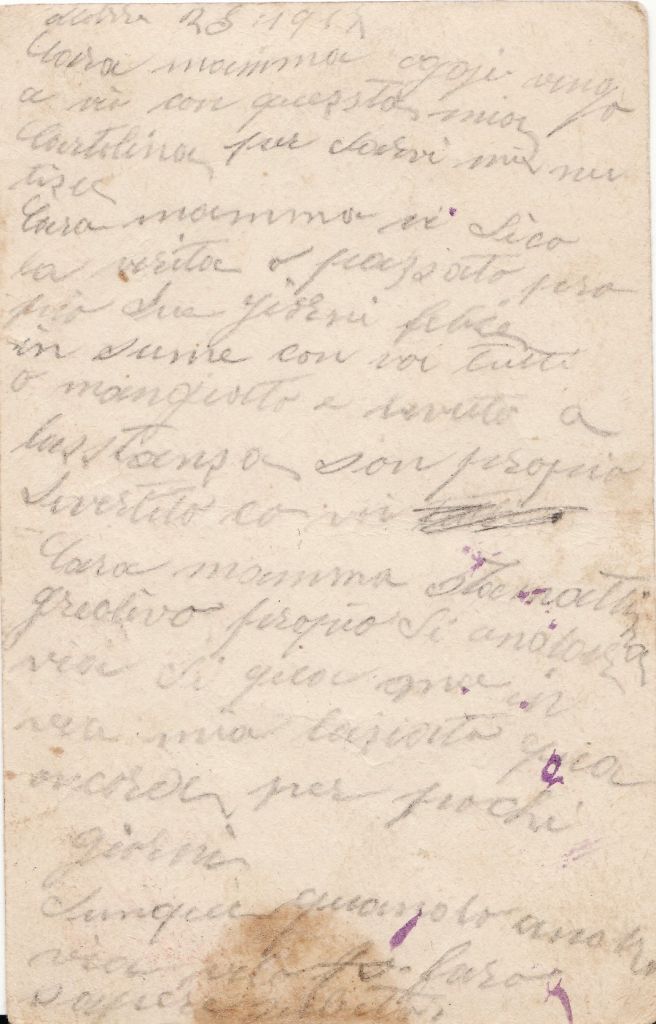 28 1917
Cara mamma oggi vengo
a voi con quessta mia
Cartolina per darvi mie no
tize
Cara mamma vi dico
la verita o passato pro
pio due giorni felice
in sume con voi tutti
o mangiatto e bevuto a
basstansa son propio
divertito co voi
Cara mamma stamattina
credevo propio di andare
via di qua ma in
vece mia lasciato qua
ancora per pochi
giorni
dunque quando andro
via velo faro
sapere